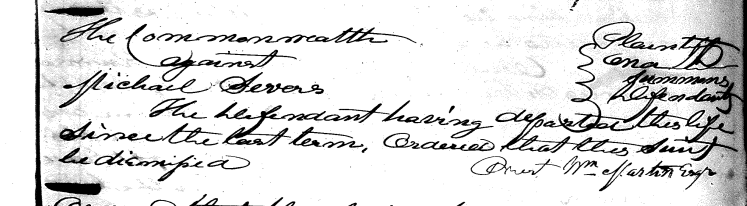 The Commonwealth Plaintiff
against on a
Summons
Michael Severs Defendant
The Defendant having departed this life
since the last term, Ordered that this suit
be dismissed
Wm Martin Esqr